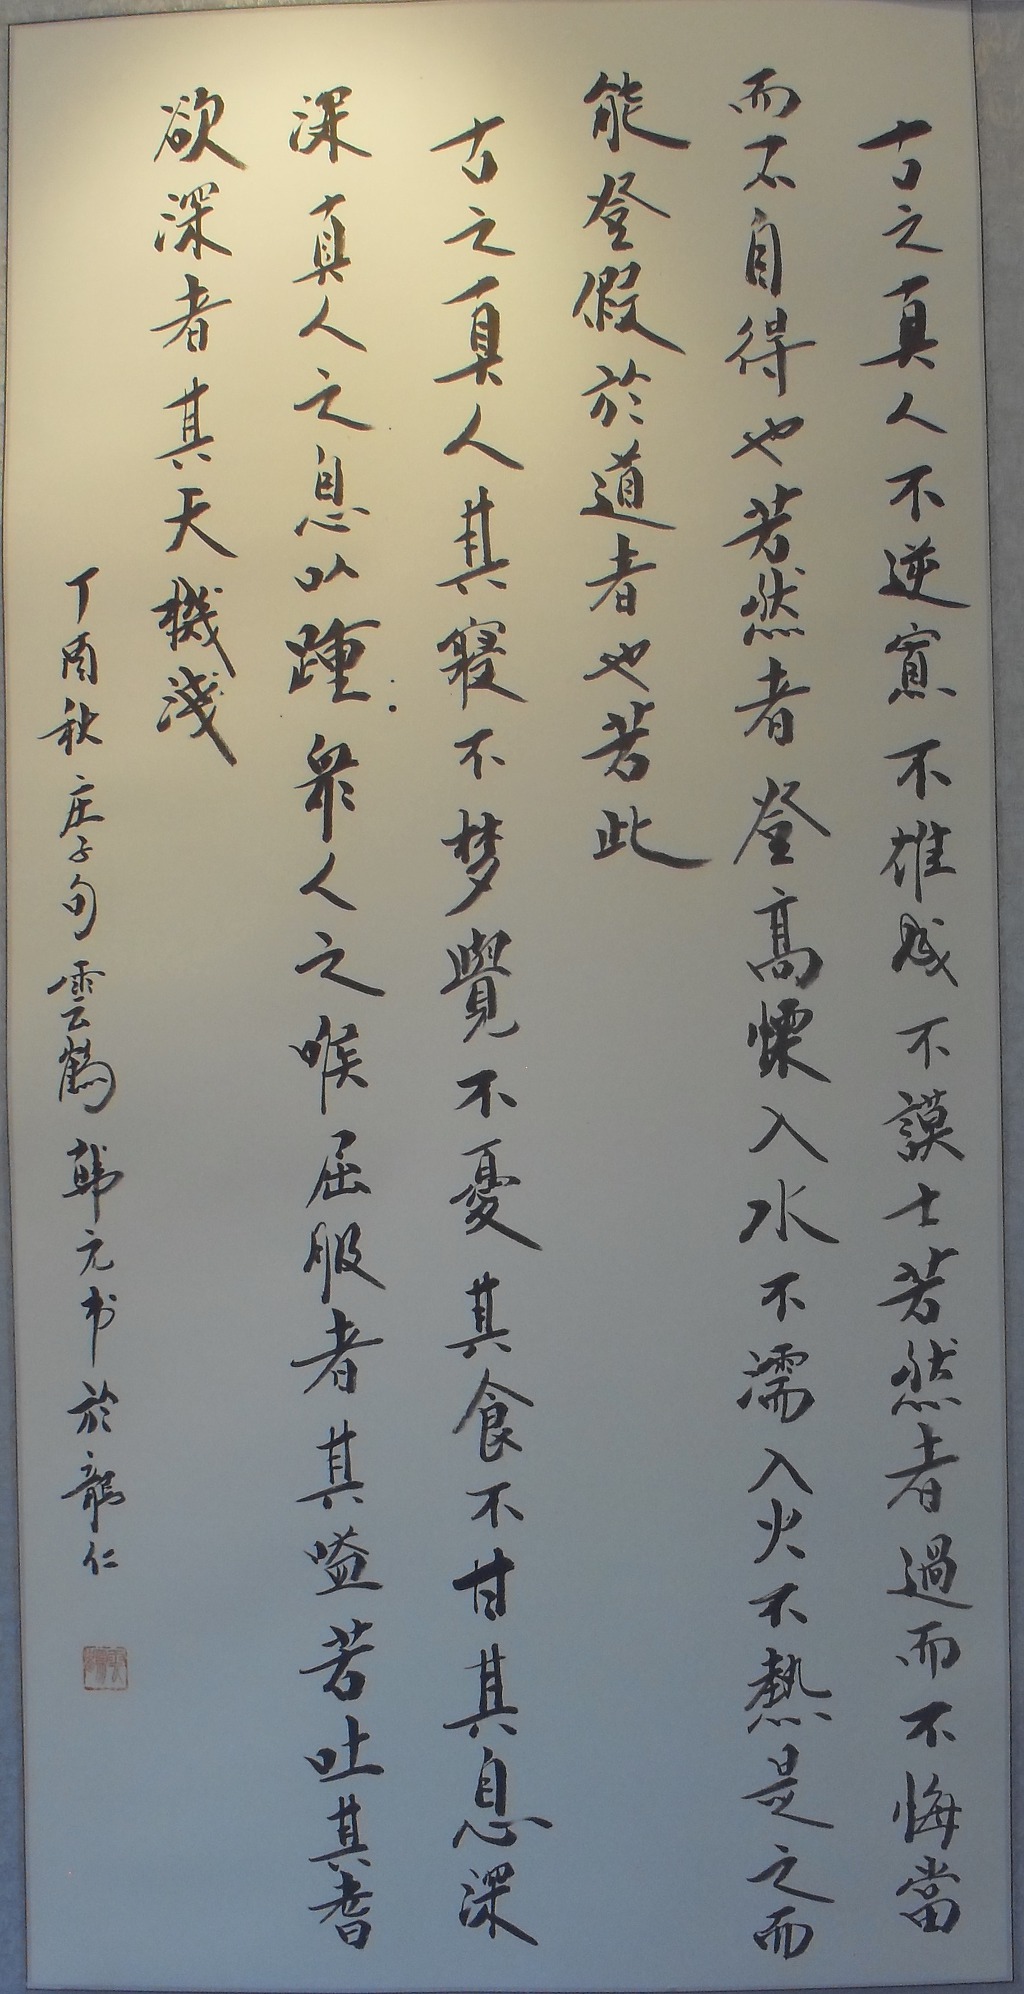 古之真人不逆寡不雄成不謨士若然者過而不悔當
而不自得也若然者登高慄入水不濡入火不熱是之而
能登假於道者也若此
古之真人其寢不梦覺不憂其食不甘其息深
深真人之息以踵衆人之喉屈服者其嗌若吐其耆
欲深者其天機淺
丁酉秋庄子句雲鶴韩元书於龍仁